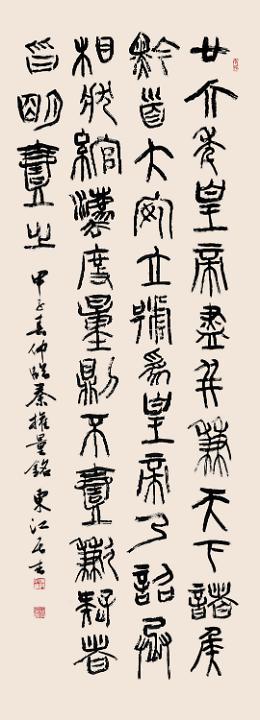 廿六年皇帝盡并兼天下諸侯
黔首大安立號為皇帝乃詔丞
相狀綰灋度量則不壹歉疑者
皆明壹之
春仲臨秦權量銘 東江居士